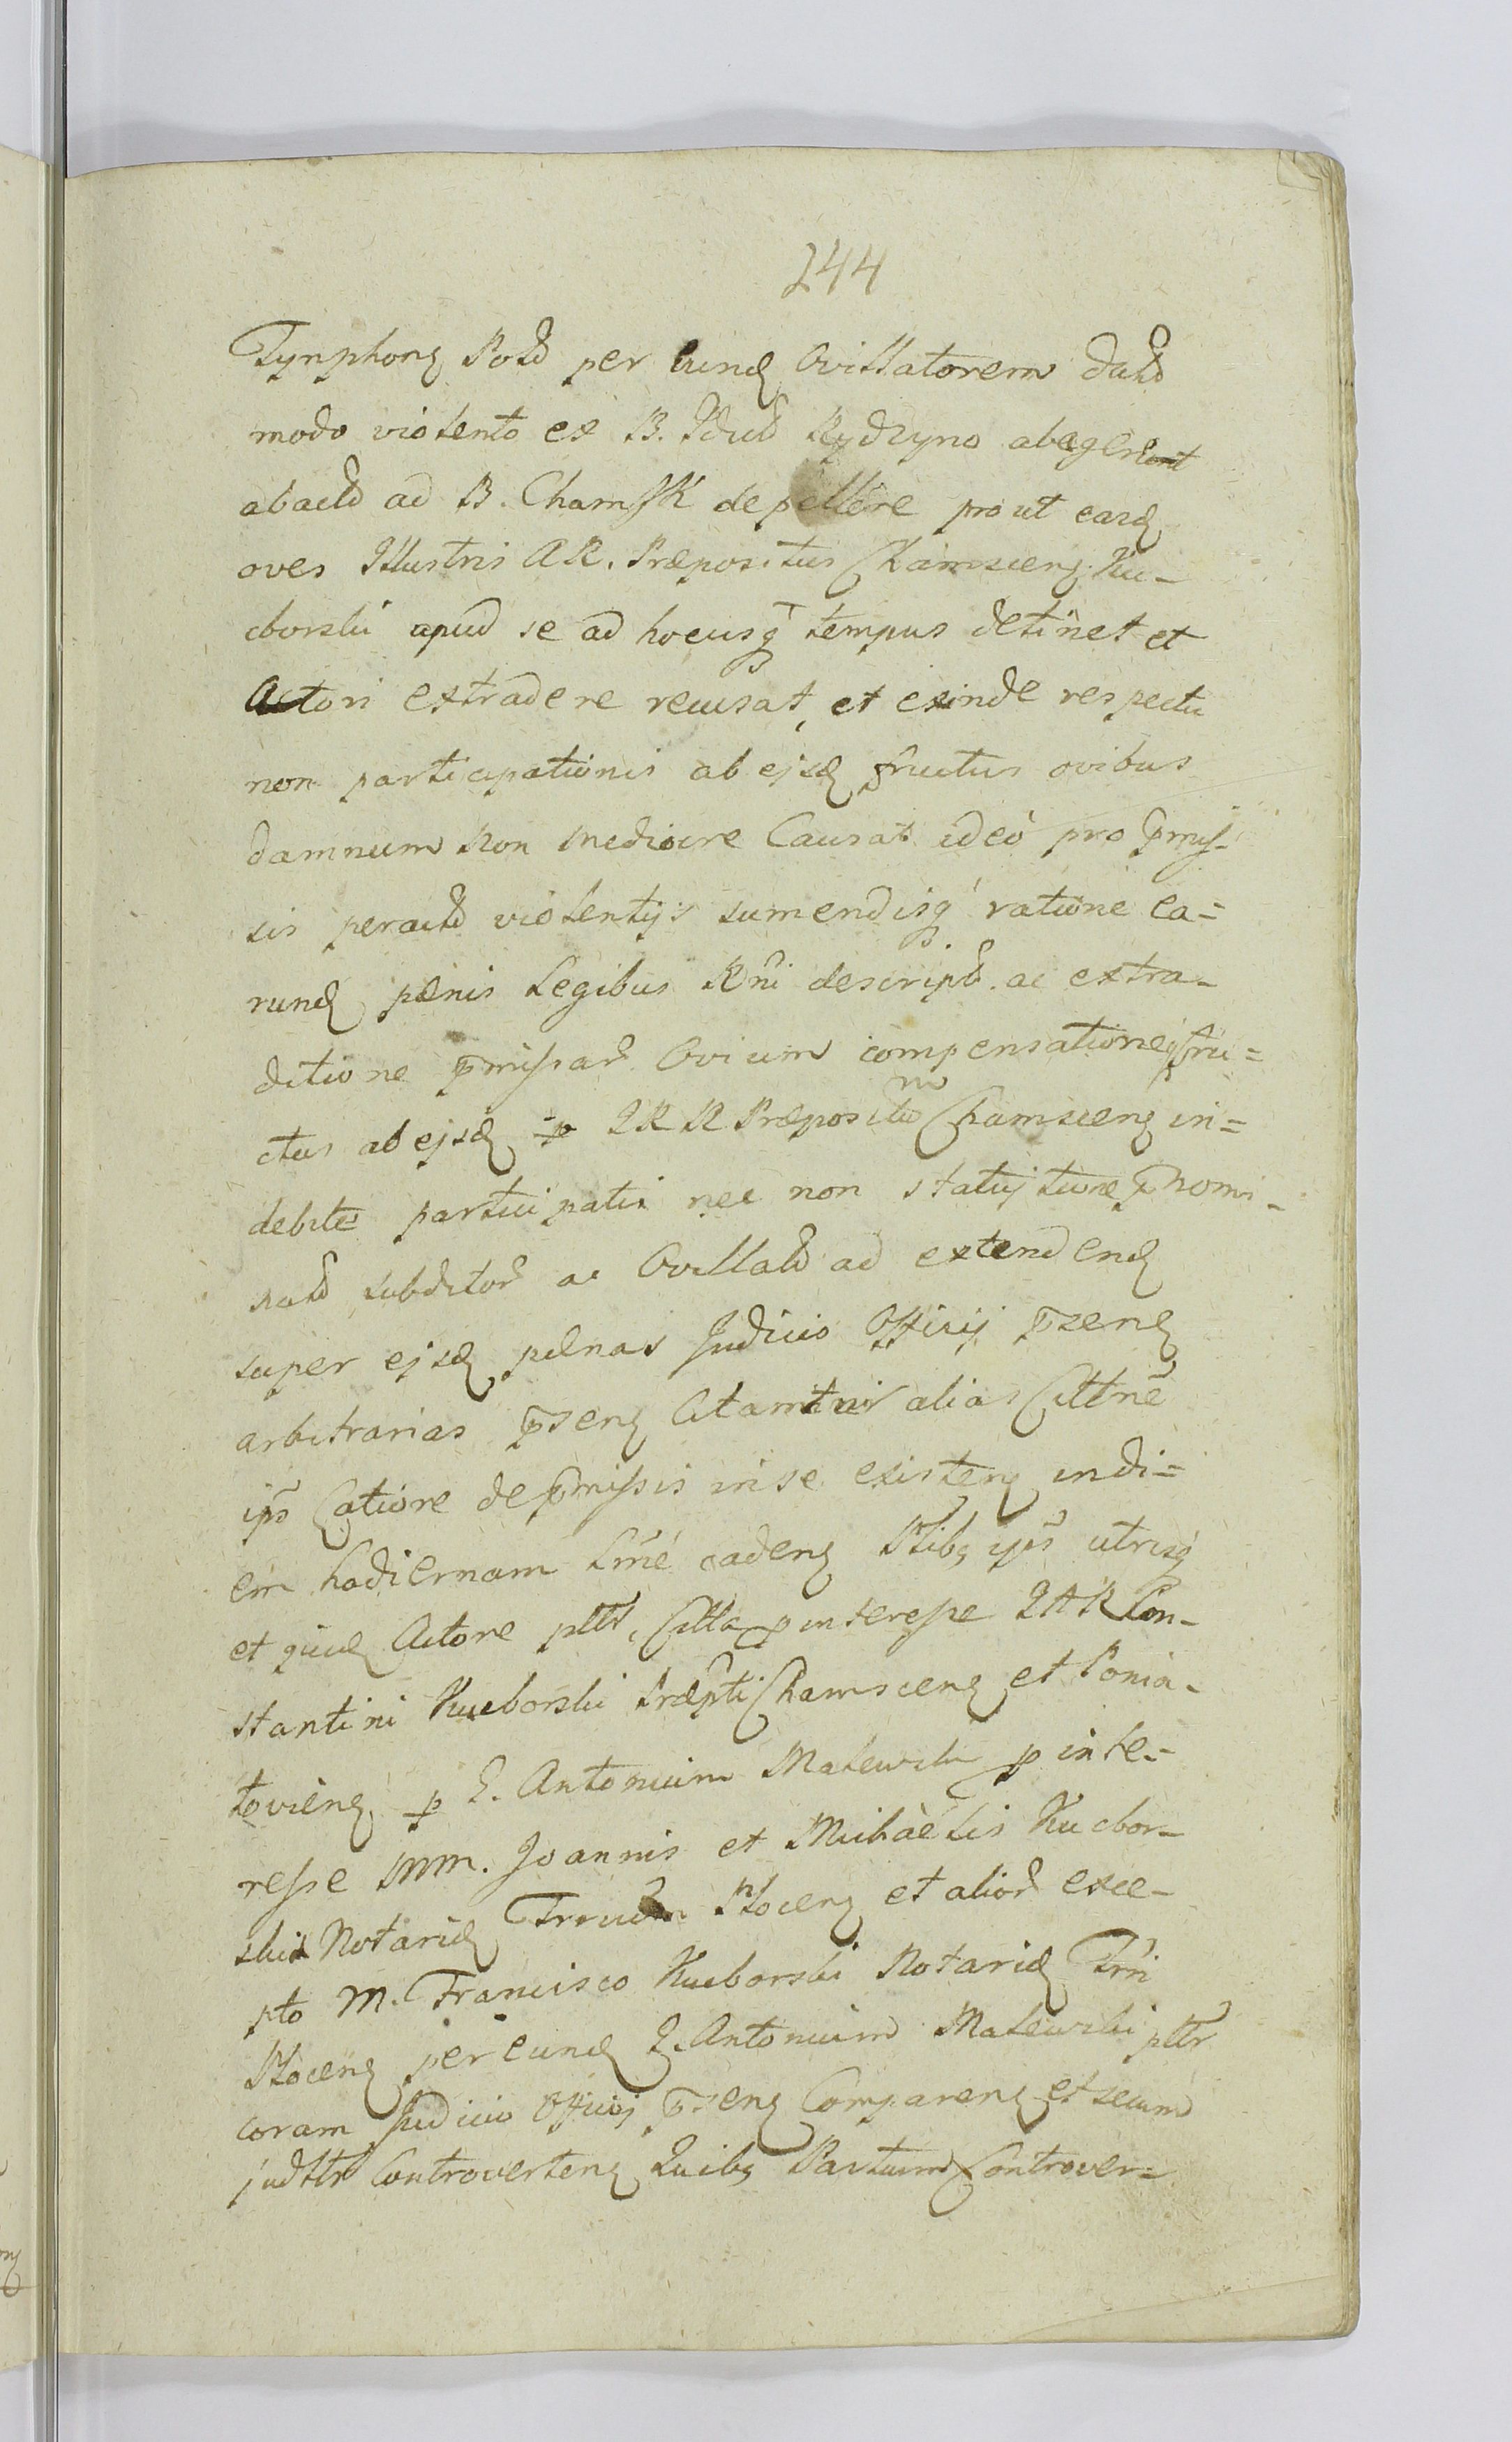 244
Tynphonę Polo per eundę Ovillatorem dato
modo violento ex B. Rydzyno abegerunt
ad B. Chamsk depellere prout easdę
oves Illustris AR. Præpositus Chamscenę Kuc-
borski apud se ad hocusq tempus detinet et
Actori extradere recusat, et exinde respectu
non participationis ab ejsdę fructus ovibus
damnum non mediocre Causat ideò pro pmis-
sis peractis violentijs sumendisq ratione ea=
rundę pænis Legibus Rni descript. ac extra-
ditione pmissar Ovium compensationeq fru=
ctus ab ejsdę p IRR Præposito Chamscenę in=
debite participati nec non statuitione pnomi-
subditor ac ad extendendę
super ejsdę pænas Judicio Officij psenę
arbitrarias psenę alias
ips Catiore de pmissis in se existenę in di=
em hodiernam cadenę Ptibę ips utrisq
et quidę Actore pltr, p interesse IAR Con-
stantini Kucborski Præpti Chamscenę et Ponia-
tovienę p G. Antonium Malewski p inte-
resse MM. Joannis et Michaëlis Kucbor-
skich Notaridę Plocenę et alior exce-
pto M. Francisco Kucborski Notaridę Trri
Plocenę per eundę G. Antonium Malewski pltr
coram Judicio Officij psenę Comparenę et secum
judttr Controvertenę Quibę Partium Controver=